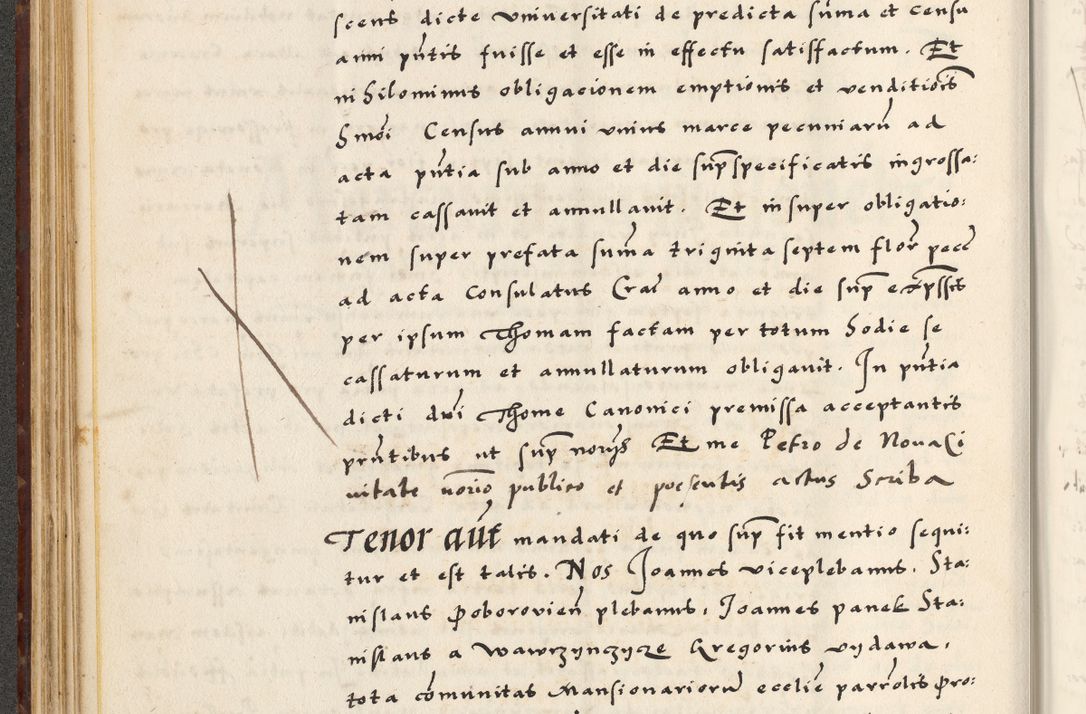 scens dicte Universitati de predicta sum̄a et censu
anni pn̄tis fuisse et esse in effectu satisfactum. Et
nihilominus obligacionem emptionis et venditiōis
hmōi Census annui unius marce pecuniarū ad
acta pn̄tia sub anno et die sup̄specificatis ingrossa:
tam cassavit et annullavit. Et insuper obligatio:
nem super prefata sum̄a triginta septem flor̄ pecc̄
ad acta Consulatus Crac̄ anno et die sup̄ exp̄ssis
per ipsum Thomam factam per totum hodie se
cassaturum et annullaturum obligavit. In pn̄tia
dicti dn̄i Thome Canonici premissa acceptantis
prn̄tibus ut sup̄ norijs Et me Petro de Nova Ci
vitate norio publico et presentis actus Scriba
Tenor aūt mandati de quo sup̄ fit mentio sequi:
tur et est talis. Nos Joannes viceplebanus. Sta:
nislaus Proborovien̄ plebanus, Joannes panek Sta:
nislaus a Wawrzynczycze Gregorius vydawa,
tota com̄unitas Mansionariorū ecclīe parrōlis Pro: